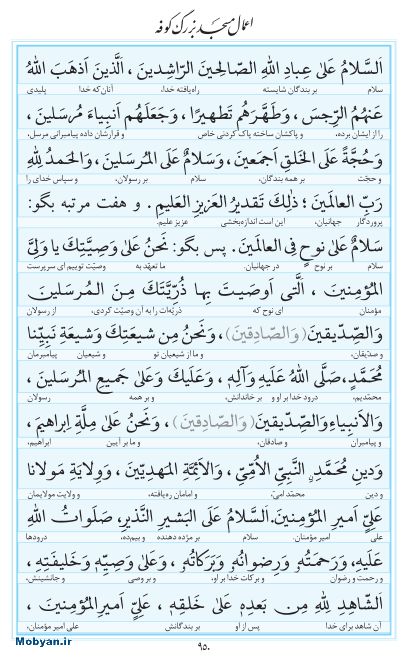 اعمال مسجد بزرگ کوفه
اَلسَّلامُ عَلیٰ عِبادِ اللهِ الصّالِحینَ الرّاشِدینَ ، اَلَّذینَ اَذهَبَ اللهُ
سلام بر بندگان شایسته راه‌یافته خدا، آنان‌که خدا پلیدی
عَنهُمُ الرِّجسَ ، وَطَهَّرَهُم تَطهیرًا ، وَجَعَلَهُم اَنبِیاءَ مُرسَلینَ ،
را از ایشان برده، و پاکشان ساخته پاک کردنی خاص و قرارشان داده پیامبرانی مرسل،
وَحُجَّةً عَلَی الخَلقِ اَجمَعینَ ، وَسَلامٌ عَلَی المُرسَلینَ ، وَالحَمدُ لِلّٰهِ
و حجّت بر همه بندگان، سلام بر رسولان، و سپاس خدای را
رَبِّ العالَمینَ ؛ ذٰلِكَ تَقدیرُ العَزیزِ العَلیمِ . و هفت مرتبه بگو:
پروردگار جهانیان، این است اندازه‌بخشی عزیز علیم.
سَلامٌ عَلیٰ نوحٍ فِی العالَمینَ . پس بگو: نَحنُ عَلیٰ وَصِیَّتِكَ یا وَلِیَّ
سلام بر نوح در جهانیان. ما تعهّد به وصیّت توییم ای سرپرست
المُؤمِنینَ ، الَّتی اَوصَیتَ بِها ذُرِّیَّتَكَ مِنَ المُرسَلینَ
مؤمنان ای نوح که ذریّه‌ات را به آن وصیّت کردی، از رسولان
وَالصِّدّیقینَ (وَالصّادِقینَ) ، وَنَحنُ مِن شیعَتِكَ وَشیعَةِ نَبِیِّنا
و صدّیقان، و ما از شیعیان تو و شیعیان پیامبرمان
مُحَمَّدٍ، صَلَّی اللهُ عَلَیهِ وَآلِهِ ، وَعَلَیكَ وَعَلیٰ جَمیعِ المُرسَلینَ ،
محمّدیم، درود خدا بر او و بر خاندانش، و بر همه رسولان
وَالاَنبِیاءِ وَالصِّدّیقینَ (وَالصّادِقینَ) ، وَنَحنُ عَلیٰ مِلَّةِ اِبراهیمَ ،
و پیامبران و صادقان، و ما بر آیین ابراهیم،
وَدینِ مُحَمَّدٍ النَّبِیِّ الاُمِّیِّ ، وَالاَئِمَّةِ المَهدِیّینَ ، وَوِلایَةِ مَولانا
و دین محمّد امّی، و امامان ره‌یافته، و ولایت مولایمان
عَلِیٍّ اَمیرِ المُؤمِنینَ. اَلسَّلامُ عَلَی البَشیرِ النَّذیرِ، صَلَواتُ اللهِ
علی امیر مؤمنان. سلام بر مژده دهنده و بیم‌ده، درودها
عَلَیهِ، وَرَحمَتُهُ وَرِضوانُهُ وَبَرَكاتُهُ ، وَعَلیٰ وَصِیِّهِ وَخَلیفَتِهِ ،
و رحمت و رضوان و برکات خدا بر او، و بر وصی و جانشینش،
الشّاهِدِ لِلّٰهِ مِن بَعدِهِ عَلیٰ خَلقِهِ ، عَلِیٍّ اَمیرِ المُؤمِنینَ ،
آن شاهد برای خدا پس از او بر بندگانش علی امیر مؤمنان،
Mobyan.ir
۹۵۰